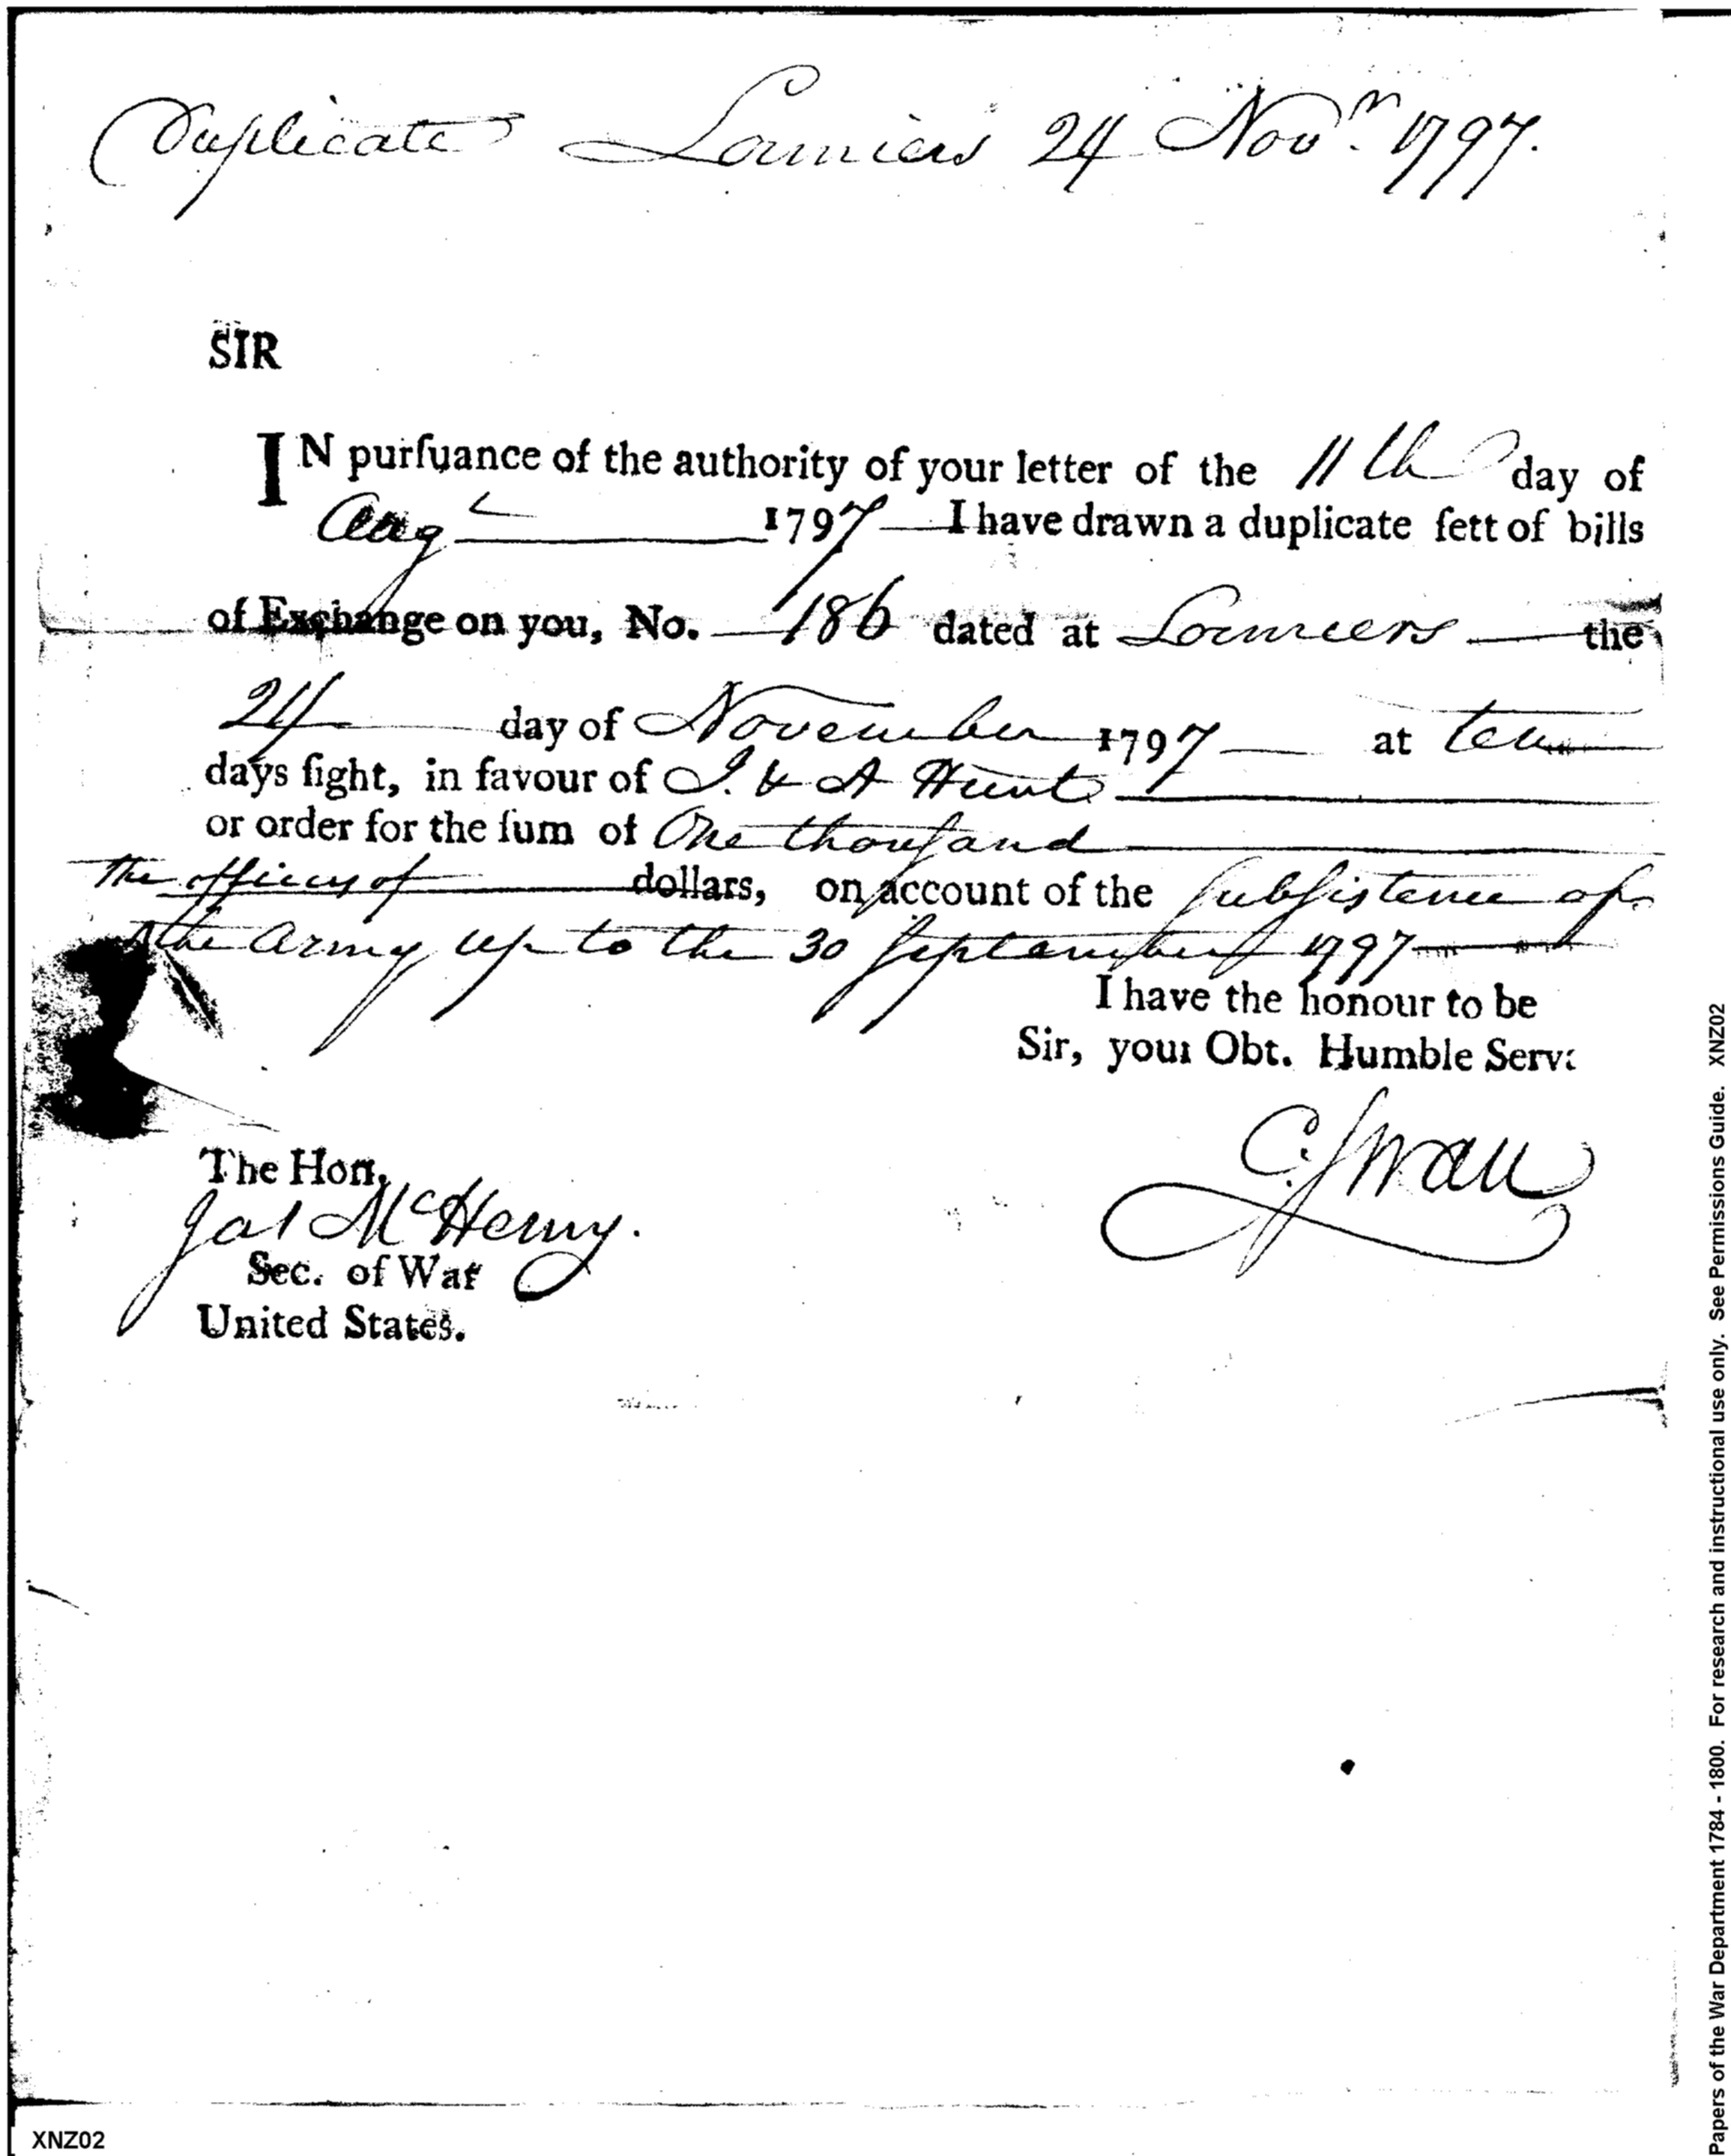 Duplicate Lormiers 24 Novr. 1797.
SIR
IN purſuance of the authority of your letter of the 11th day of
Augt 1797 I have drawn a duplicate ſett of bills
of Exchange on you, No. 186 dated at Lormiers the
24 day of November 1797 at ten
days ſight, in favour of J. & A Hunt
or order for the ſum of One thouſand
The officers of dollars, on account of the Subſistence of
the Army up to the 30 September 1797
I have the honour to be
Sir, your Obt. Humble Servt
C. Swan
The Hon.
Jas McHenry.
Sec. of War
United States.
Papers of the War Department 1784 - 1800. For research and instructional use only. See Permissions Guide. XNZ02
XNZ02